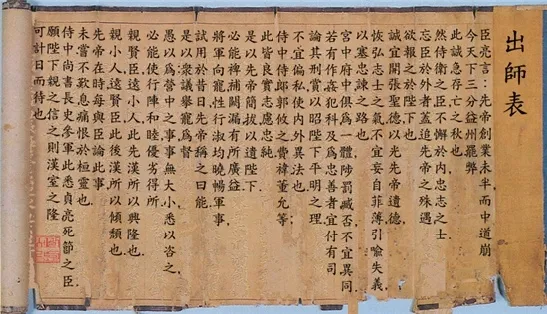 出師表
臣亮言：先帝創業未半而中道崩
今天下三分益州罷弊
此誠急存亡之秋也
然侍衛之臣不懈於內忠志之士
忘臣於外者蓋追先帝之殊遇
欲報之於陛下也
誠宜開張聖德以光先帝遺德
恢弘志士之氣不宜妄自菲薄引喻失義
以塞忠諫之路也
宮中府中俱為一體陟罰臧否不宜異同
若有作姦犯科及為忠善者宜付有司
論其刑賞以昭陛下平明之理
不宜偏私使內外異法也
侍中侍郎郭攸之費禕董允等
此皆良實志慮忠純
是以先帝簡拔以遺陛下
必能裨補闕漏有所廣益
將軍向寵性行淑均曉暢軍事
試用於昔日先帝稱之曰能
是以眾議舉寵為督
愚以為營中之事事無大小悉以咨之
必能使行陣和睦優劣得所
親賢臣遠小人此先漢所以興隆也
親小人遠賢臣此後漢所以傾頹也
先帝在時每與臣論此事
未嘗不歎息痛恨於桓靈也
侍中尚書長史參軍此悉貞亮死節之臣
願陛下親之信之則漢室之隆
可計日而待也